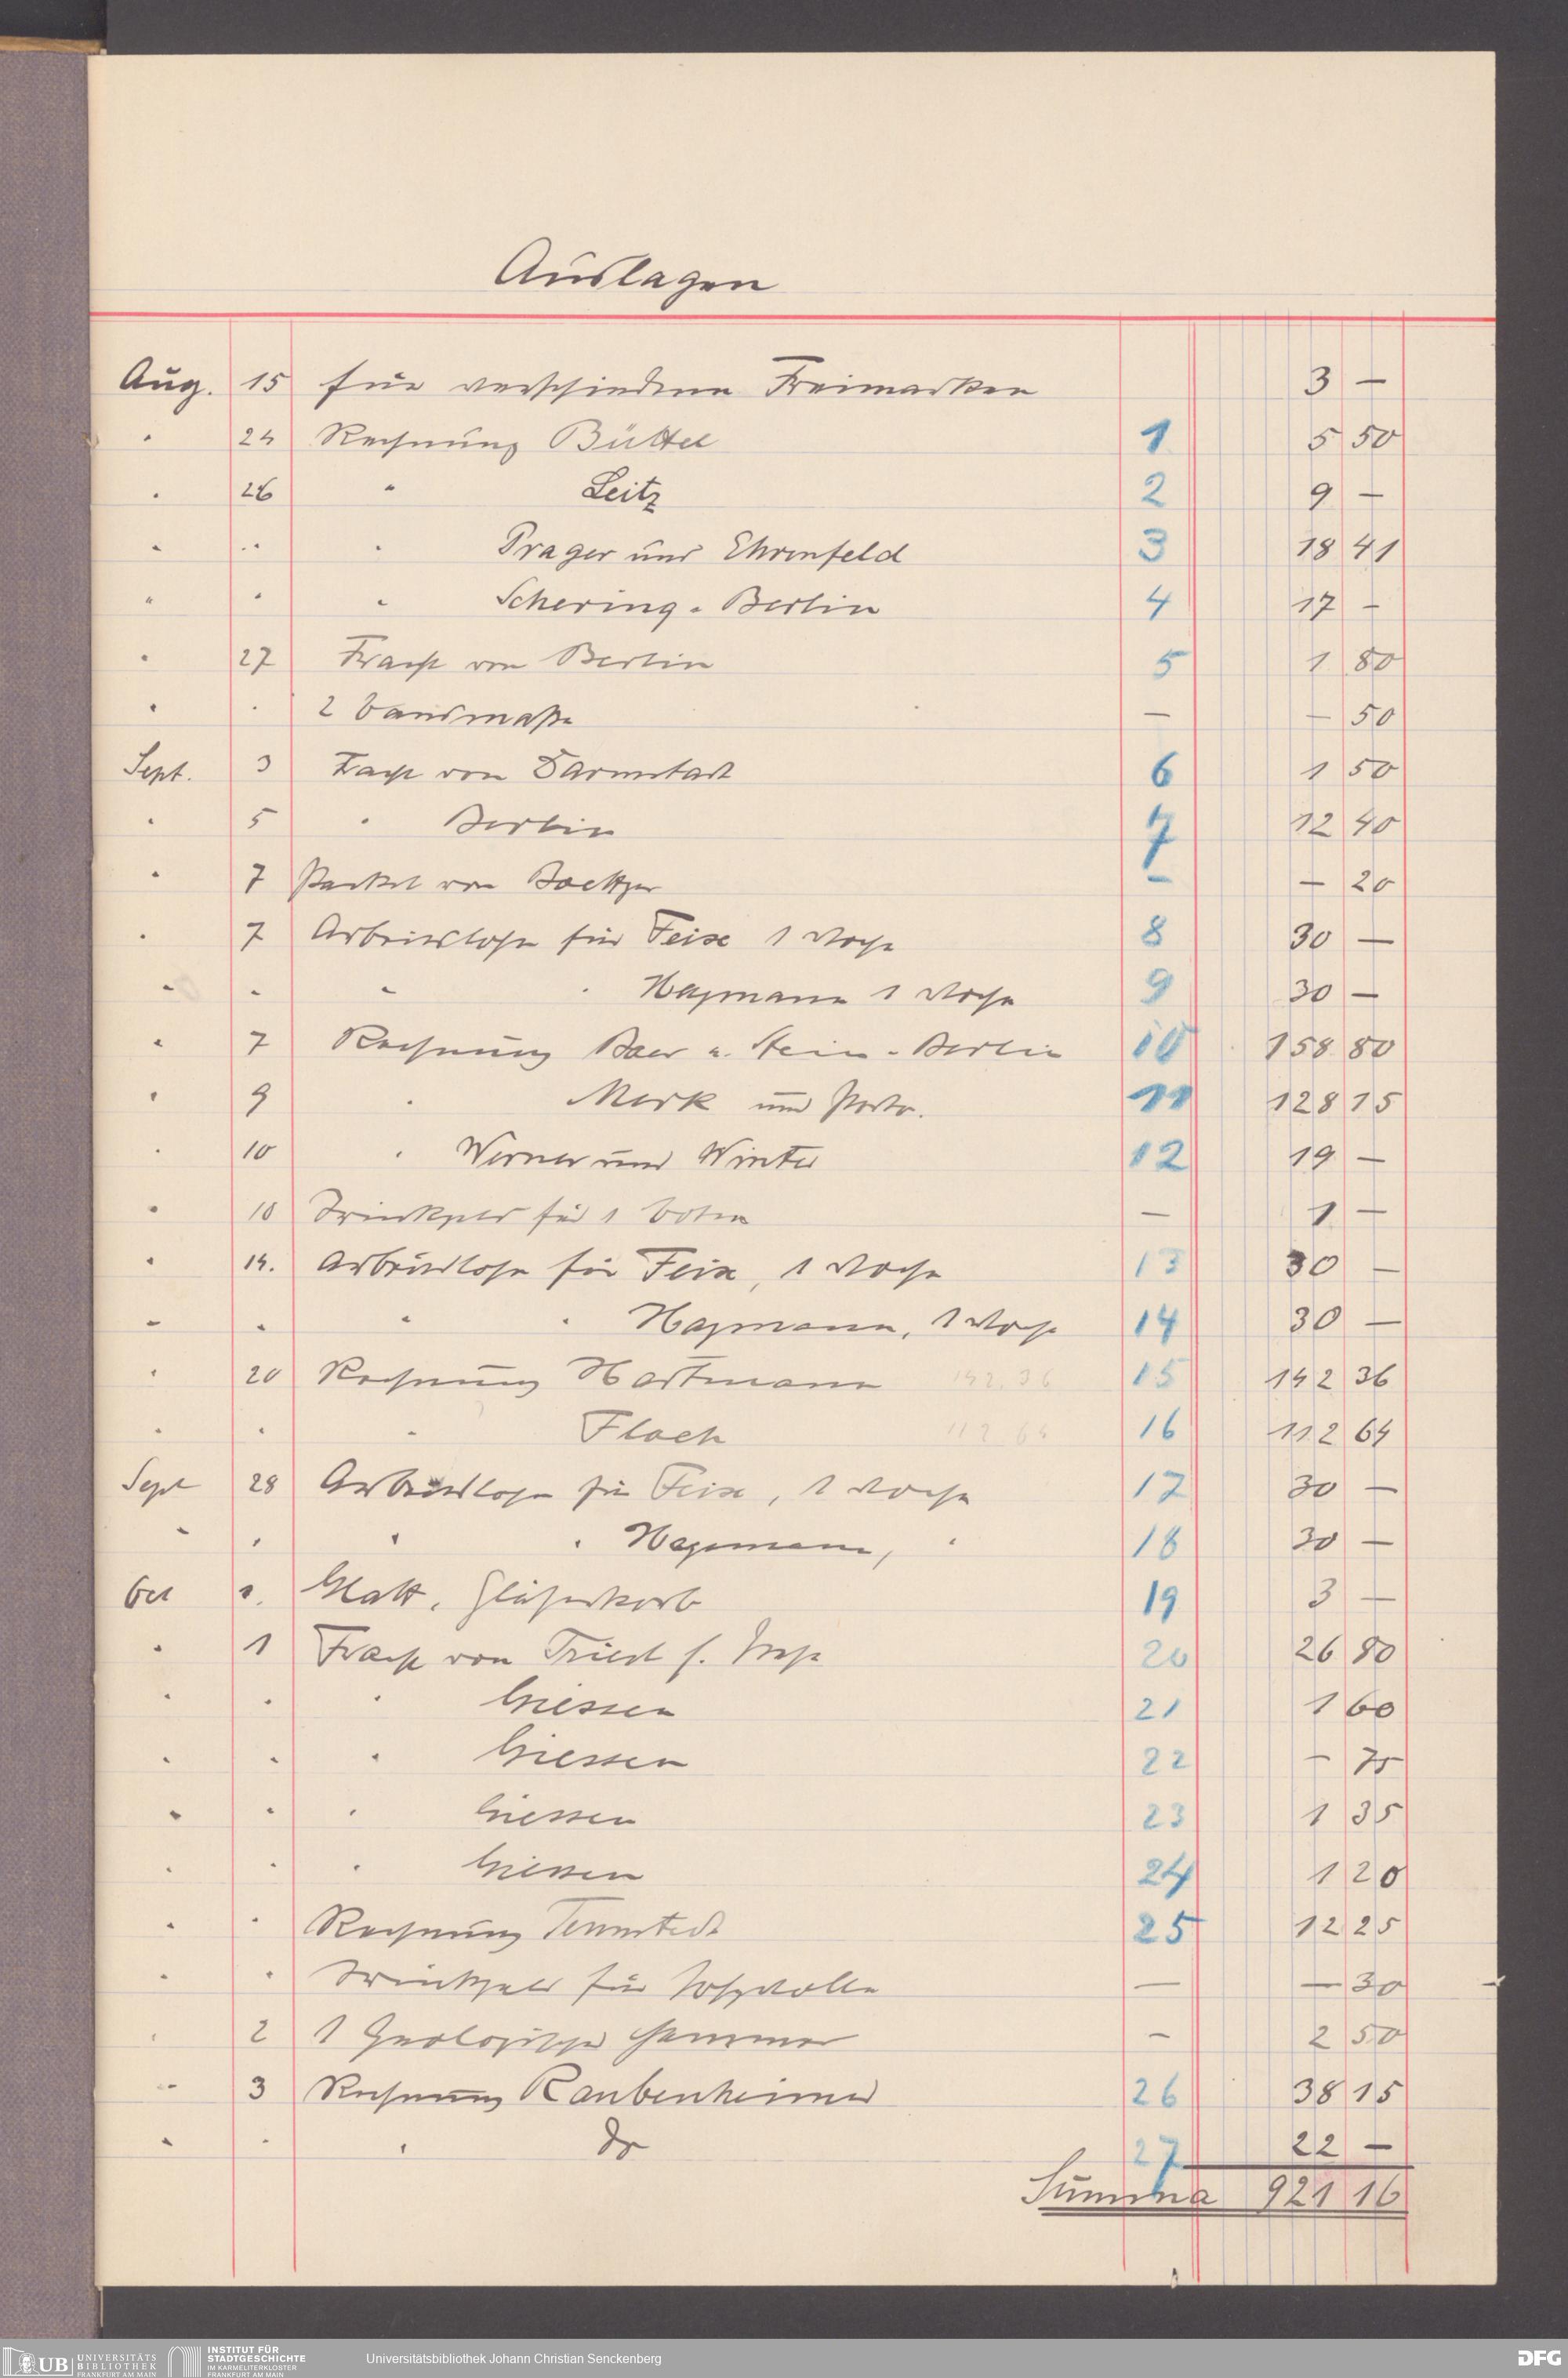 Auslagen
Aug. 15 für verschiedene Freimarken 3 —
" 24 Rechnung Büttel 1 5 50
" 26 " Leitz 2 9 —
" " " Prager und Ehrenfeld 3 18 41
" " " Schering - Berlin 4 17 —
" 27 Fracht von Berlin 5 1 80
" " 2 Bandmaße — — 50
Sept. 3 Fracht von Darmstadt 6 1 50
" 5 " Berlin 7 12 40
" 7 Packet von Boettger — — 20
" 7 Arbeitslohn für Feix 1 Woche 8 30 —
" " " " Hagmann 1 Woche 9 30 —
" 7 Rechnung Baer u. Stein - Berlin 10 158 80
" 9 " Merk und Porto. 11 128 15
" 10 " Werner und Winter 12 19 —
" 10 Trinkgeld für 1 Boten — 1 —
" 14. Arbeitslohn für Feix, 1 Woche 13 30 —
" " " " Hagmann, 1 Woche 14 30 —
" 20 Rechnung Hartmann 142.36 15 142 36
" " " Flach 112 64 16 112 64
Sept 28 Arbeitslohn für Feix, 1 Woche 17 30 —
" " " " Hagemann, " 18 30 —
Oct 1. Glatt, 19 3 —
" 1 Fracht von Triest 20 26 80
" " " Giessen 21 1 60
" " " Giessen 22 — 75
" " " Giessen 23 1 35
" " " Giessen 24 1 20
" " Rechnung Tennstedt 25 12 25
" " Trinkgeld für Holzwolle — — 30
" 2 1 Geologischer Hammer — 2 50
" 3 Rechnung Raubenheimer 26 38 15
" " " do 27 22 —
Summa 921 16
UB UNIVERSITÄTS
BIBLIOTHEK
FRANKFURT AM MAIN
INSTITUT FÜR
STADTGESCHICHTE
IM KARMELITERKLOSTER
FRANKFURT AM MAIN
Universitätsbibliothek Johann Christian Senckenberg
DFG